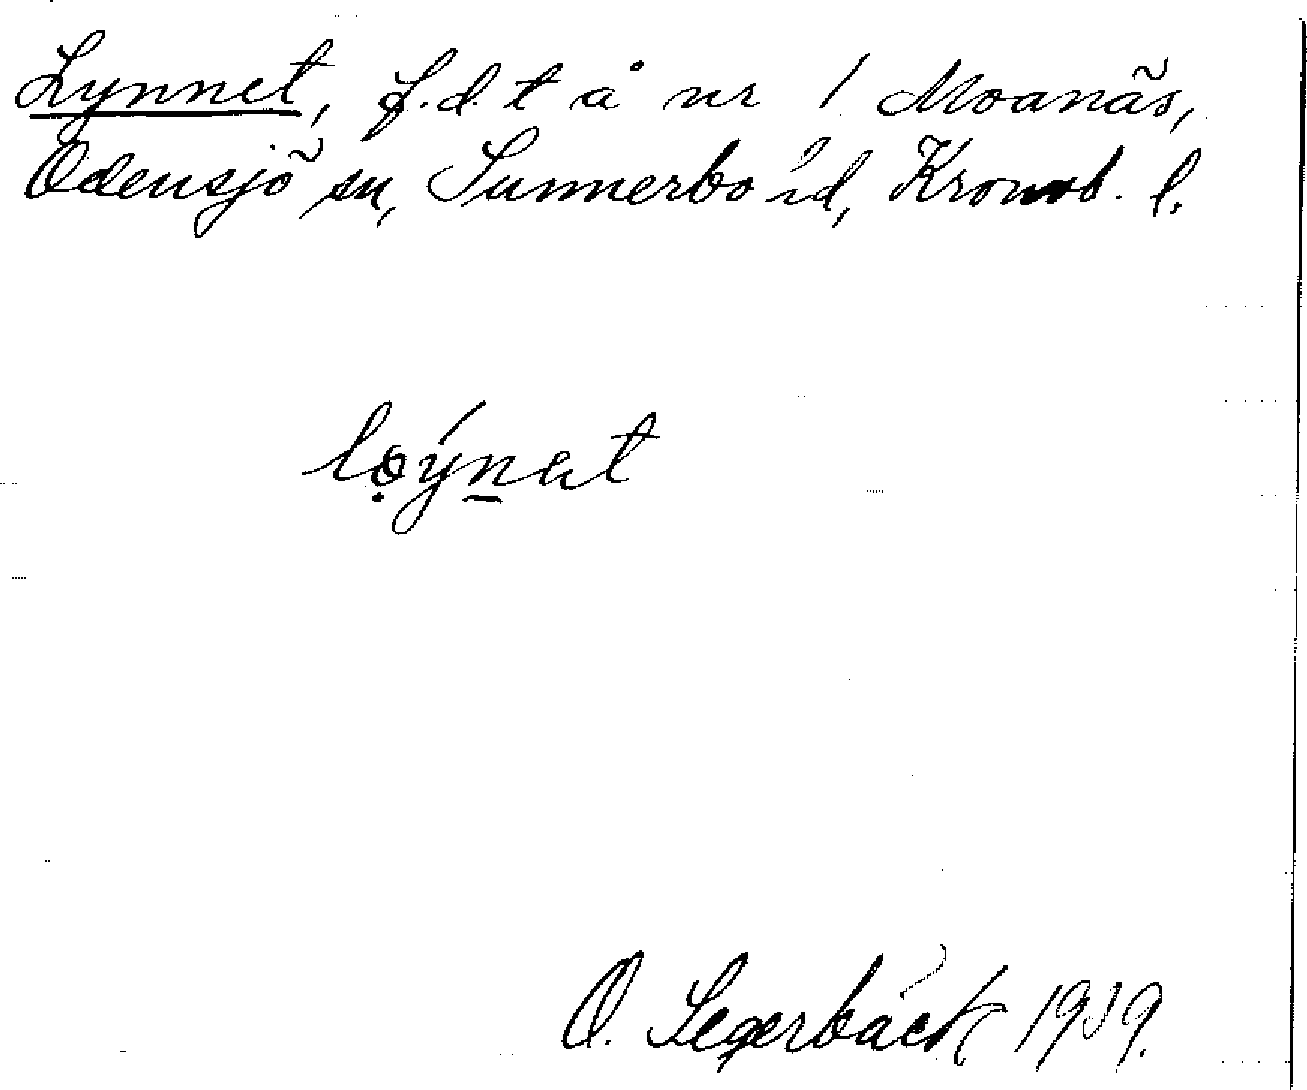 Lynnet, f.d. t å nr 1 Moanäs,
Odensjö sn, Sunnerbo hd, Kronob. l.
O. Segerbäck 1939.